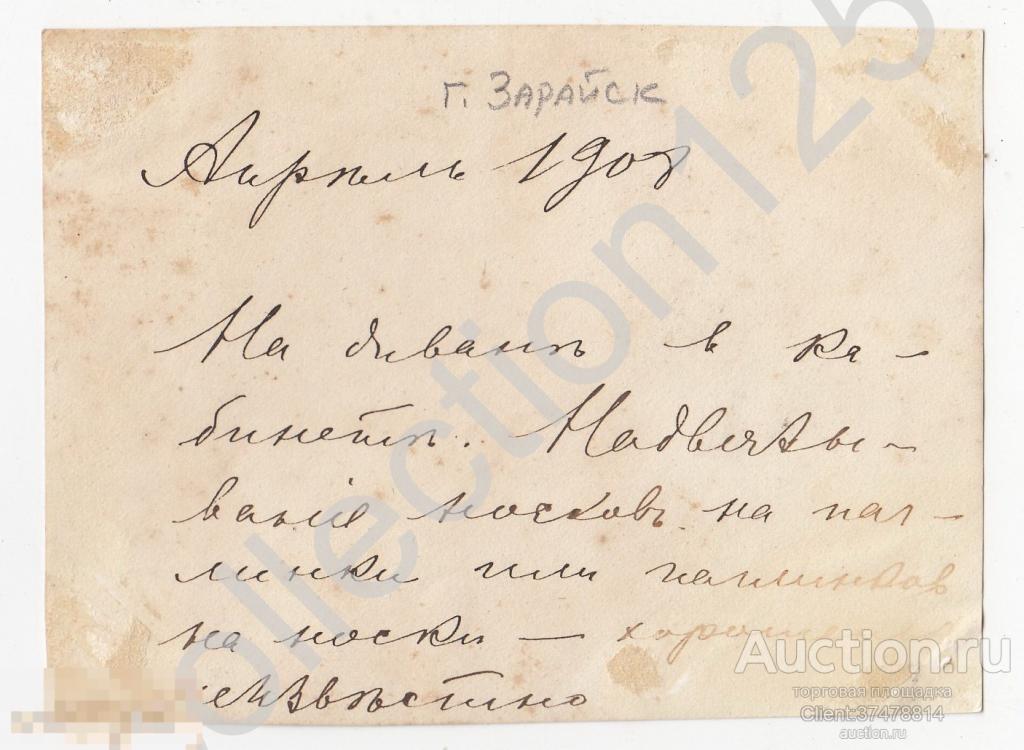 г. Зарайск
Апрѣль 1908
На диванѣ в ка-
бинетѣ. Надвязы-
ванiе носковъ на паг-
линки или паглинков
на носки — хорошенько
неизвѣстно
Collection 125
Auction.ru
торговая площадка
Client:37478814
auction.ru